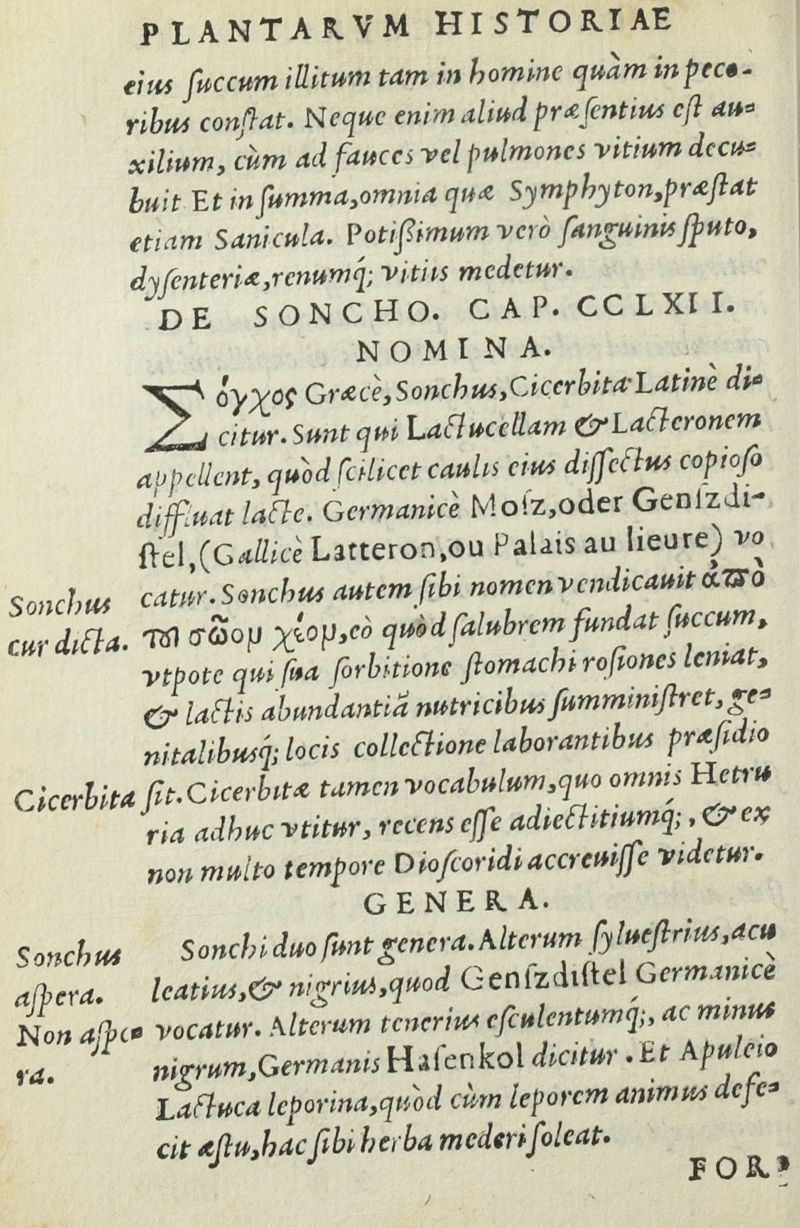 PLANTARVM HISTORIAE
eius ſuccum illitum tam in homine quàm in peco-
ribus conſtat. Neque enim aliud præſentius eſt au-
xilium, cùm ad fauces vel pulmones vitium decu-
buit Et in ſumma, omnia quæ Symphyton, præſtat
etiam Sanicula. Potiſsimum verò ſanguinis ſputo,
dyſenteriæ, renumq́; vitiis medetur.
DE SONCHO. CAP. CCLXII.
NOMINA.
Σόγχος Græcè, Sonchus, Cicerbita Latinè di-
citur. Sunt qui Lactucellam & Lacteronem
appellent, quòd ſcilicet caulis eius diſſectus copioſo
diffluat lacte. Germanicè Moſz, oder Genſzdi-
ſtel, (Gallicè Latteron, ou Palais au lieure) vo
catur. Sonchus autem ſibi nomen vendicauit ἀπὸ
Sonchus
cur dicta.
τοῦ σῶομ χέομ, eò quòd ſalubrem fundat ſuccum,
vtpote qui ſua ſorbitione ſtomachi roſiones leniat,
& lactis abundantiã nutricibus ſumminiſtret, ge-
nitalibusq́; locis collectione laborantibus præſidio
Cicerbita
ſit. Cicerbitæ tamen vocabulum, quo omnis Hetru
ria adhuc vtitur, recens eſſe adiectitiumq́;, & ex
non multo tempore Dioſcoridi accreuiſſe videtur.
GENERA.
Sonchus
aſpera.
Non aſpe-
ra.
Sonchi duo ſunt genera. Alterum ſylueſtrius, acu
leatius, & nigrius, quod Genſzdiſtel Germanicè
vocatur. Alterum tenerius eſculentumq́;, ac minus
nigrum, Germanis Haſenkol dicitur. Et Apuleio
Lactuca leporina, quòd cùm leporem animus defe-
cit æſtu, hac ſibi herba mederi ſoleat.
FOR-